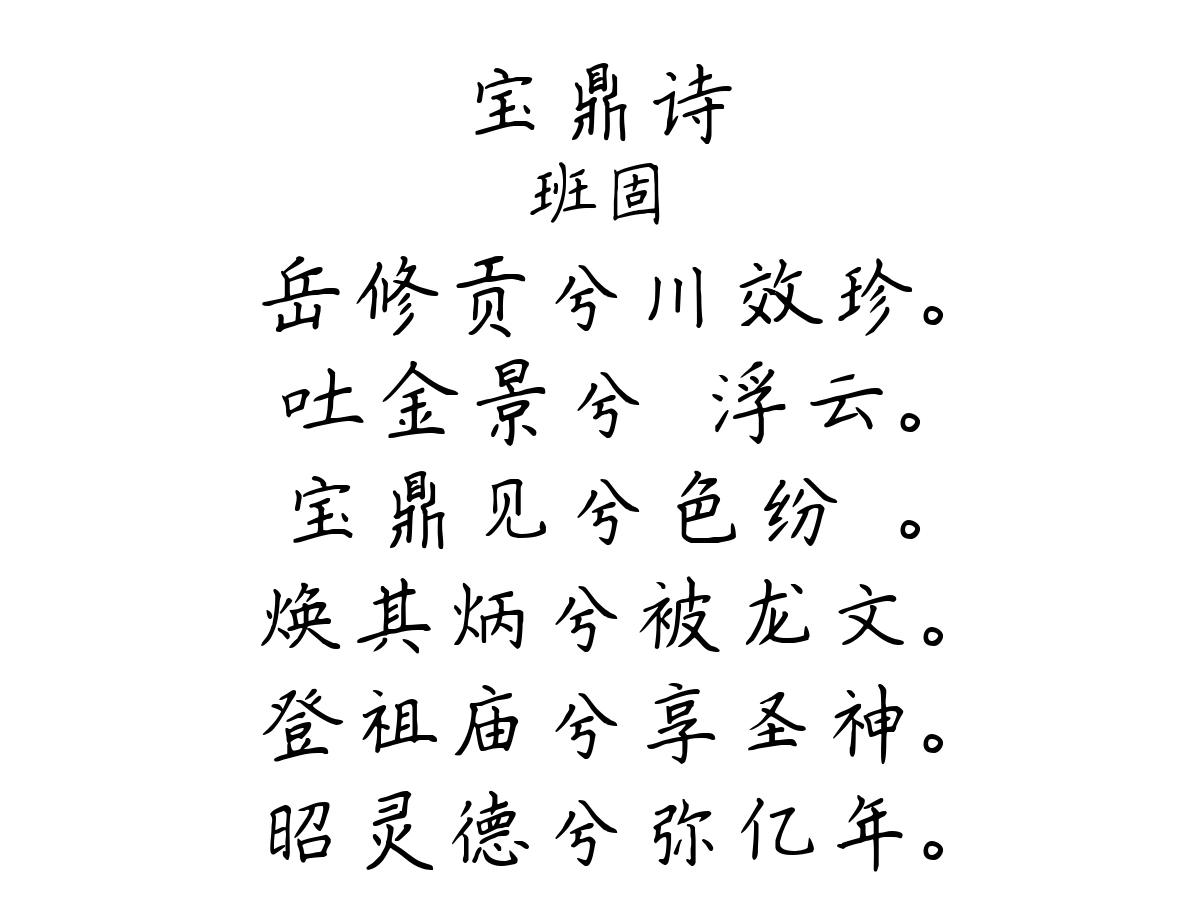 宝鼎诗
班固
岳修贡兮川效珍。
吐金景兮 浮云。
宝鼎见兮色纷 。
焕其炳兮被龙文。
登祖庙兮享圣神。
昭灵德兮弥亿年。